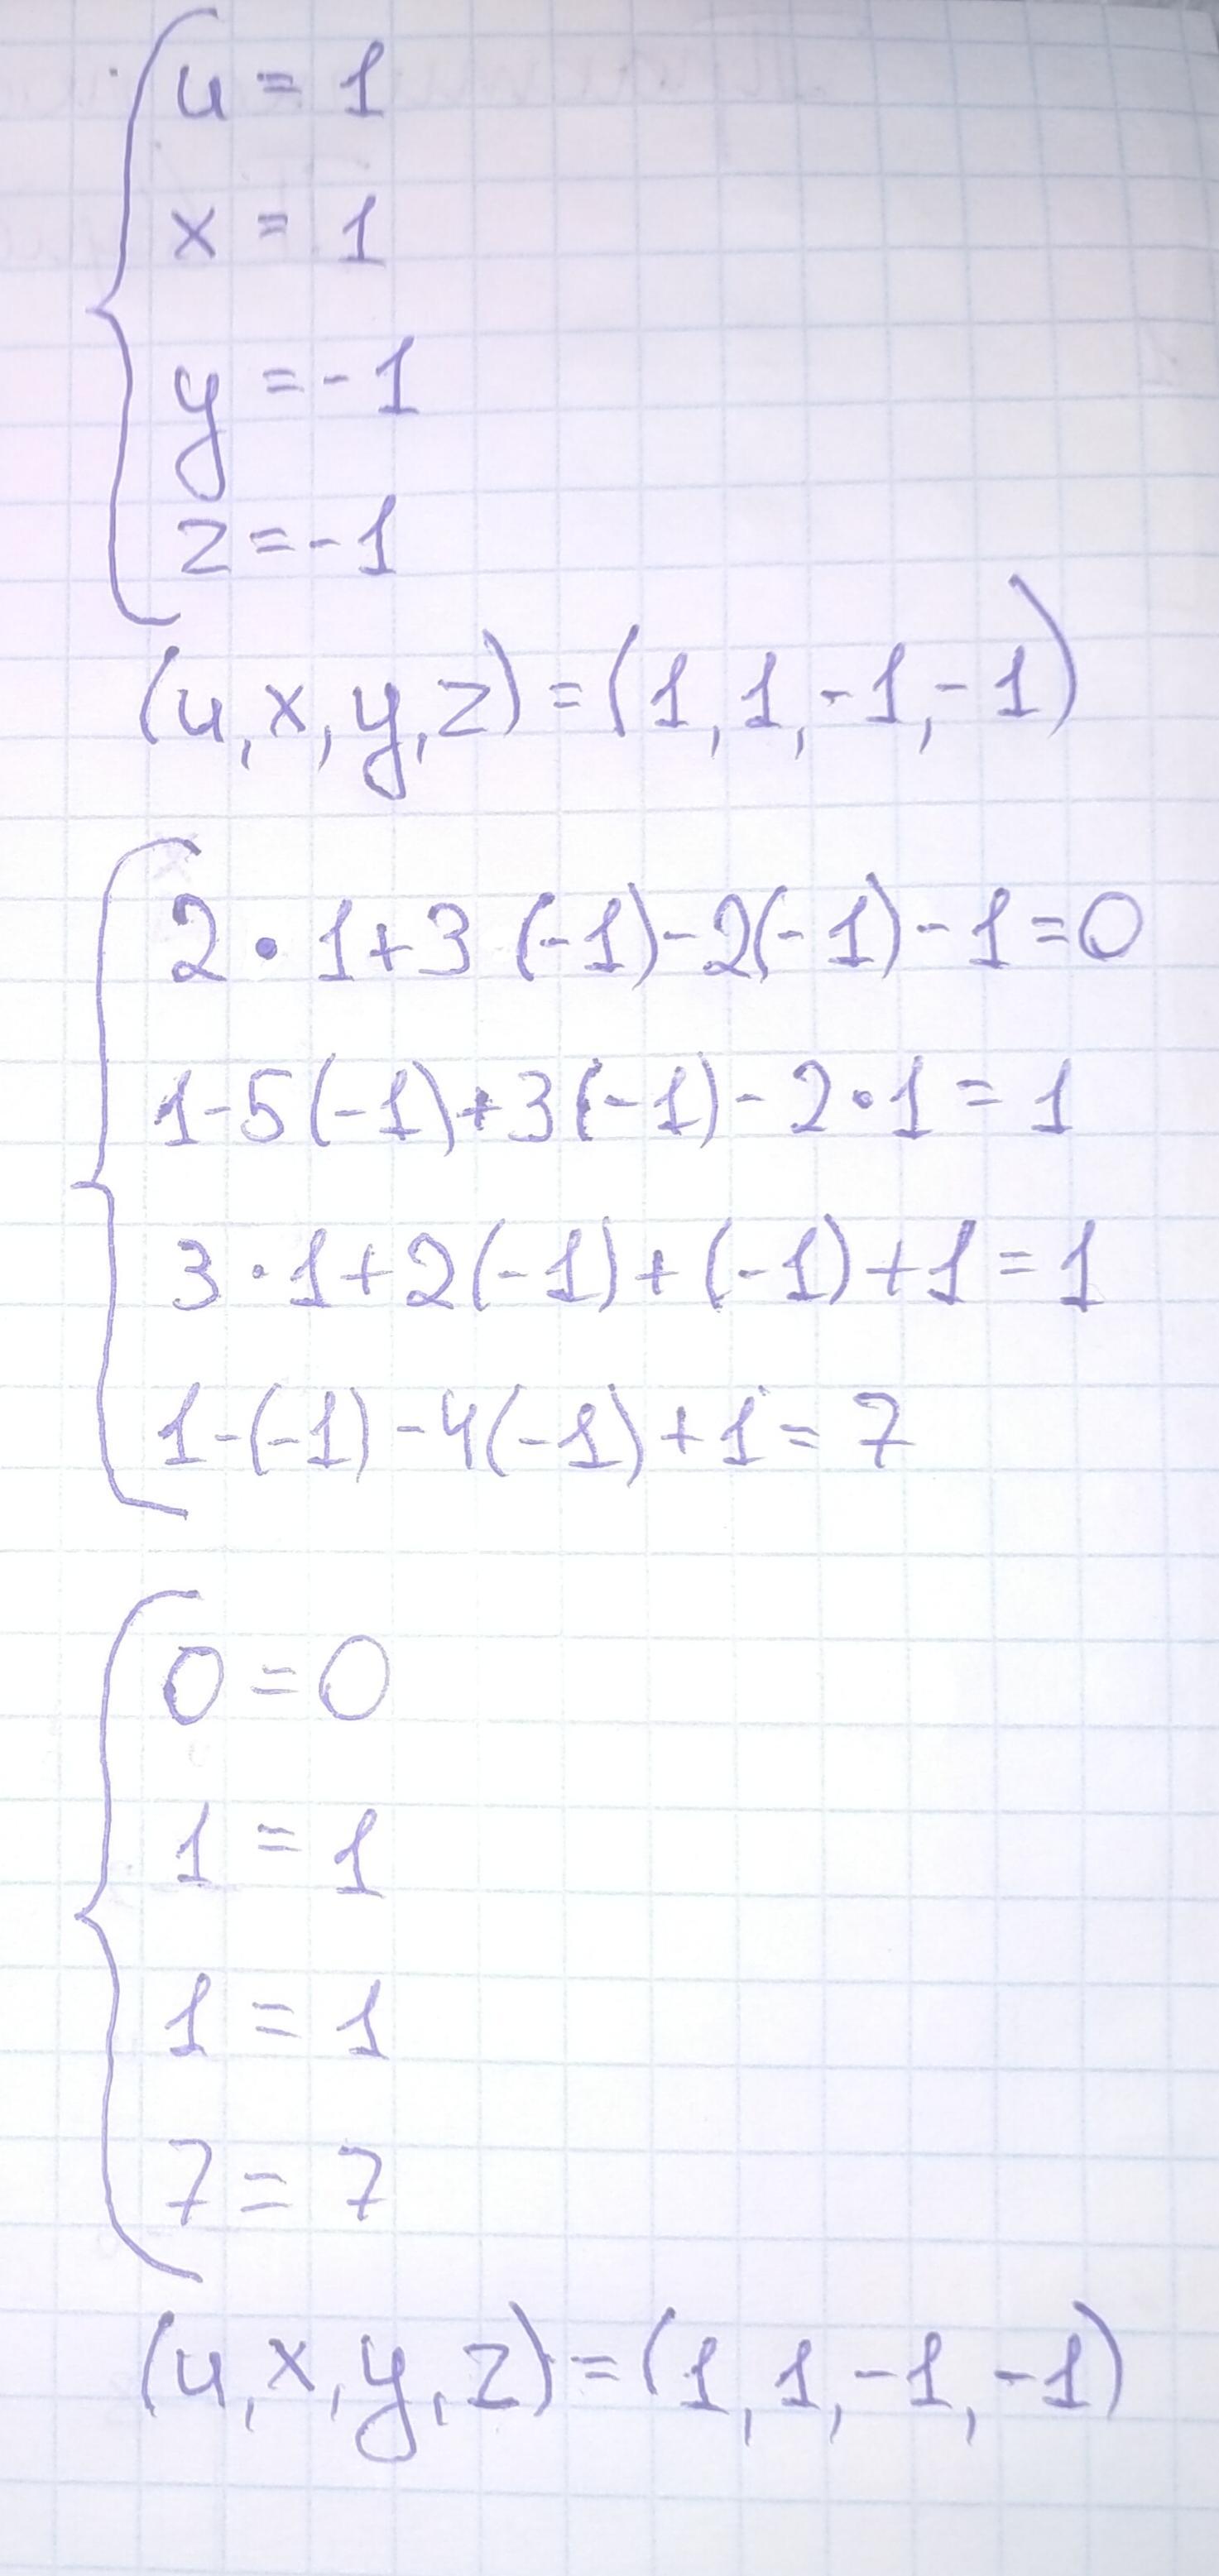 u = 1
x = 1
y = -1
z = -1
(u, x, y, z) = (1, 1, -1, -1)
2 • 1 + 3 (-1) - 2(-1) - 1 = 0
1 - 5(-1) + 3(-1) - 2 • 1 = 1
3 • 1 + 2(-1) + (-1) + 1 = 1
1 - (-1) - 4(-1) + 1 = 7
0 = 0
1 = 1
1 = 1
7 = 7
(u, x, y, z) = (1, 1, -1, -1)